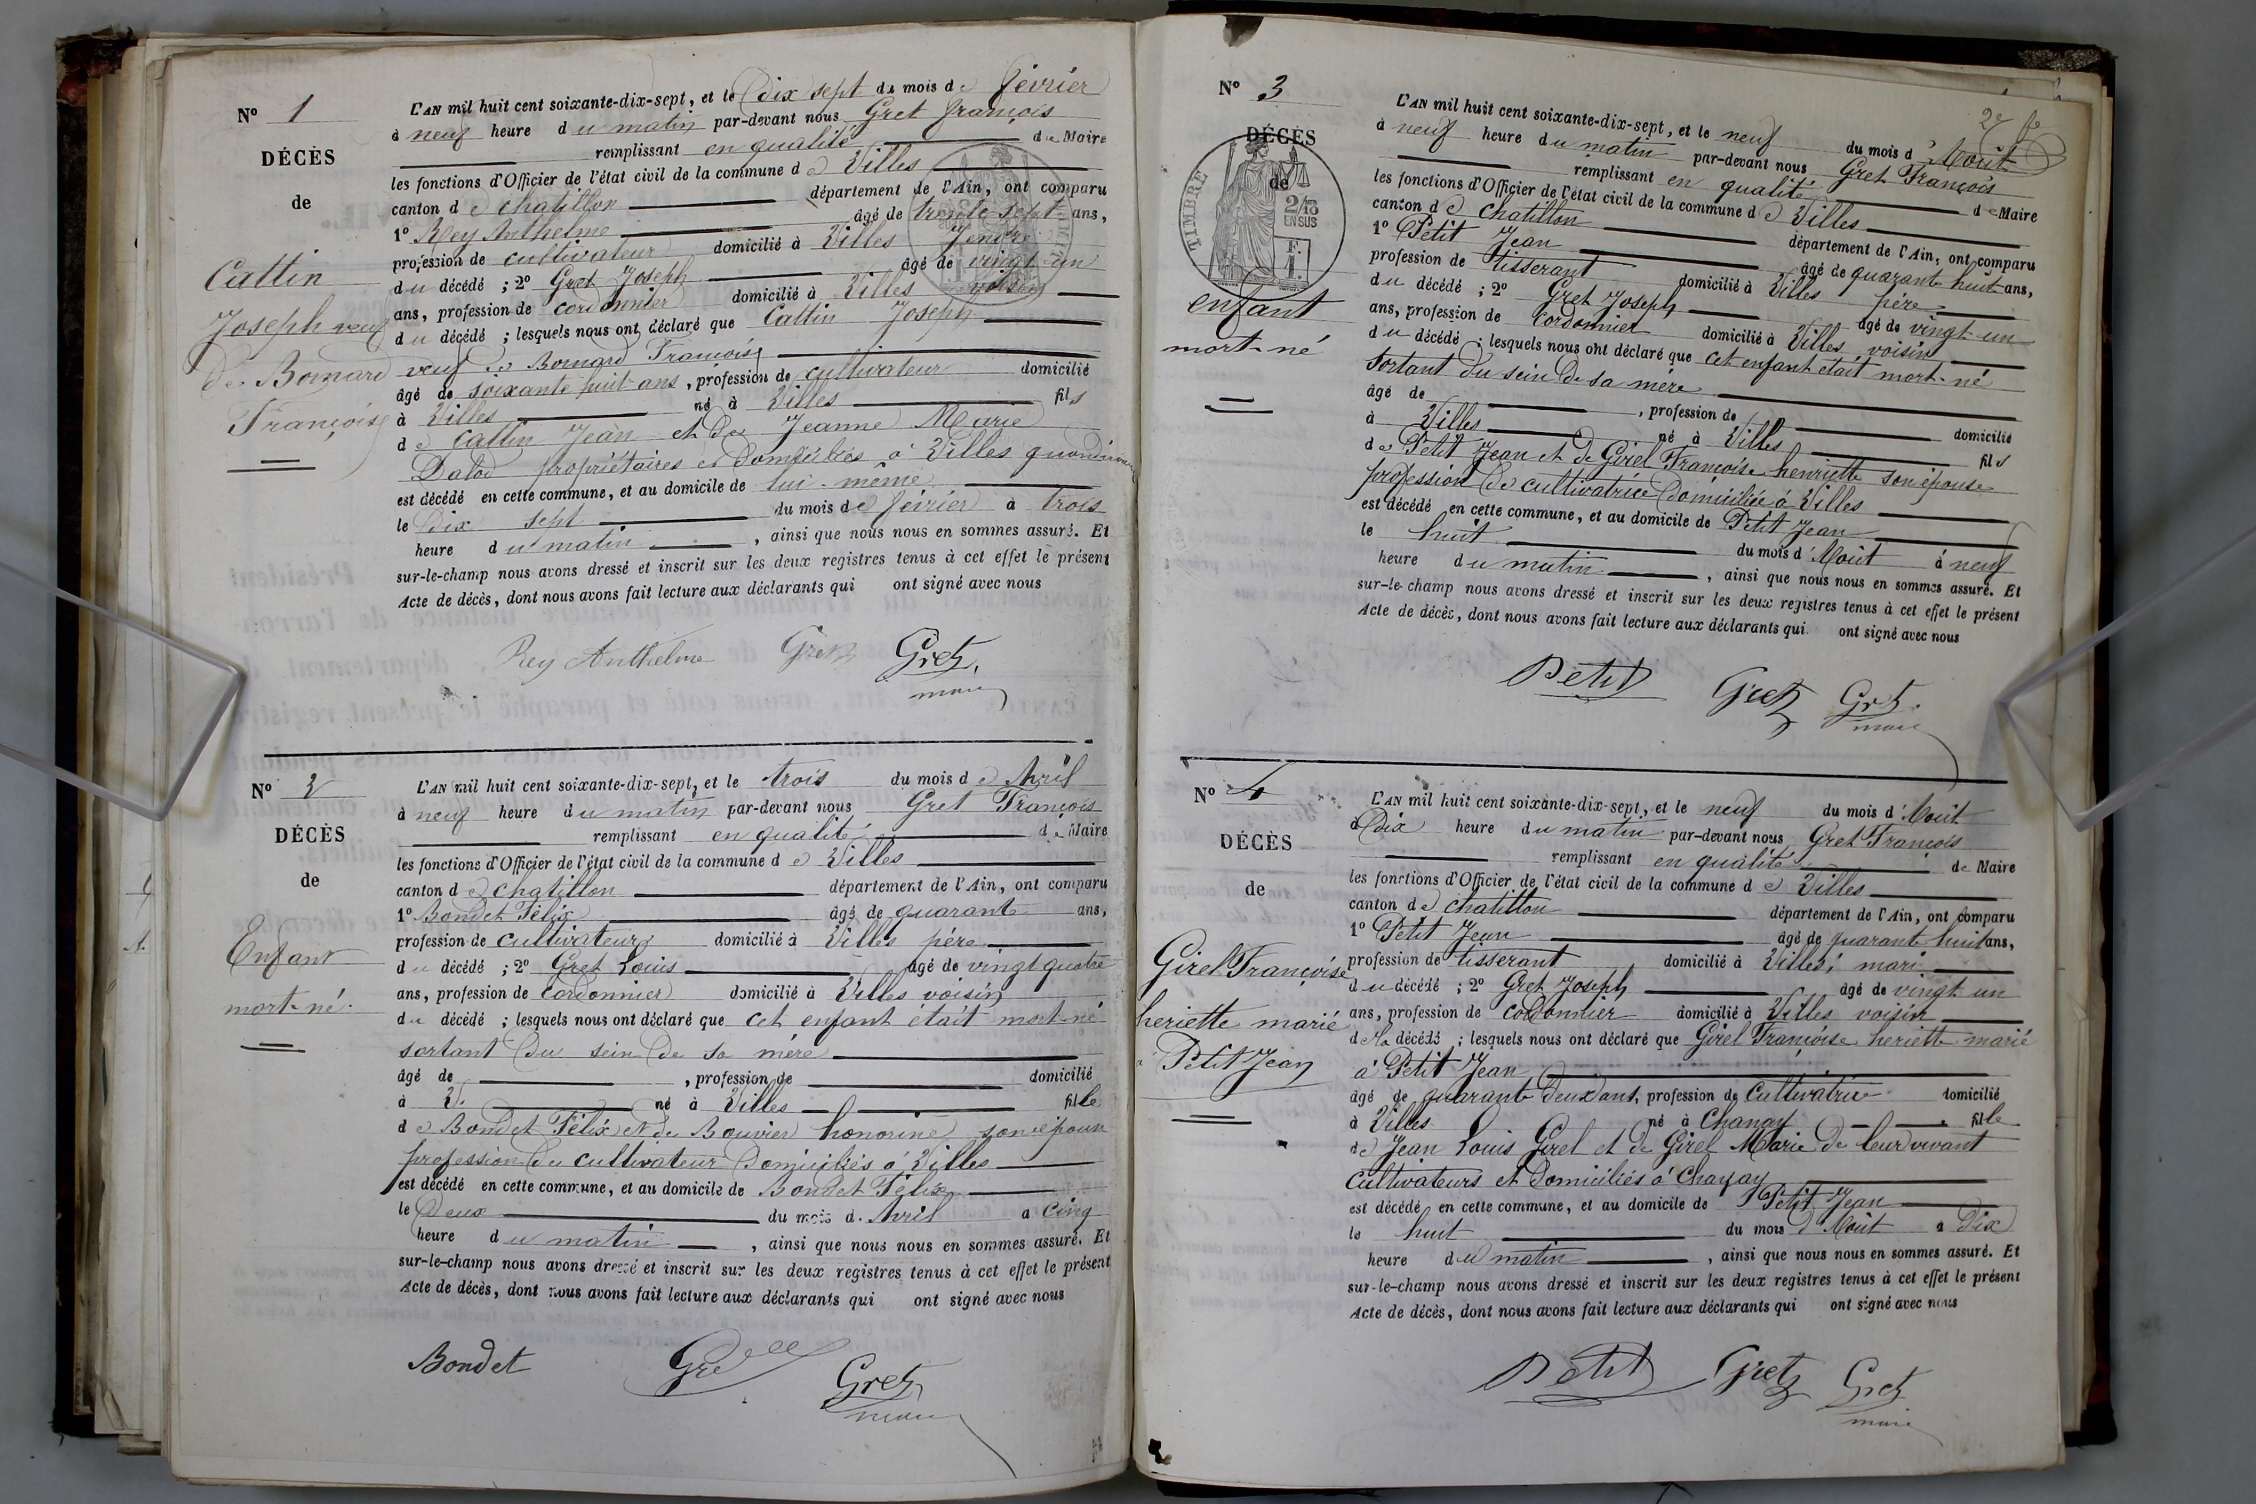 N° 1
DÉCÈS
de
Cattin
Joseph veuf
de Bornard
Françoise
L'AN mil huit cent soixante-dix-sept, et le dix sept du mois de février
à neuf heure du matin par-devant nous Gret françois
remplissant en qualité de Maire
les fonctions d'Officier de l'état civil de la commune de Villes
canton de chatillon département de l'Ain, ont comparu
1° Rey Anthelme âgé de trente sept ans,
profession de cultivateur domicilié à Villes Gendre
du décédé ; 2° Gret Joseph âgé de vingt un
ans, profession de cordonnier domicilié à Villes voisin
du décédé ; lesquels nous ont déclaré que Cattin Joseph
veuf de Bornard Françoise
âgé de soixante huit ans, profession de cultivateur domicilié
à Villes né à Villes fils
de Cattin Jean et de Jeanne Marie
propriétaires et domiciliés à Villes
est décédé en cette commune, et au domicile de lui-même
le dix sept du mois de février à trois
heure du matin, ainsi que nous nous en sommes assuré. Et
sur-le-champ nous avons dressé et inscrit sur les deux registres tenus à cet effet le présent
Acte de décès, dont nous avons fait lecture aux déclarants qui ont signé avec nous
Rey Anthelme Gret Gret
maire
N° 2
DÉCÈS
de
Enfant
mort-né
L'AN mil huit cent soixante-dix-sept, et le trois du mois de Avril
à neuf heure du matin par-devant nous Gret François
remplissant en qualité de Maire
les fonctions d'Officier de l'état civil de la commune de Villes
canton de chatillon département de l'Ain, ont comparu
1° Bondet Félix âgé de quarante ans,
profession de cultivateur domicilié à Villes père
du décédé ; 2° Gret Louis âgé de vingt quatre
ans, profession de cordonnier domicilié à Villes voisin
du décédé ; lesquels nous ont déclaré que cet enfant était mort-né
sortant du sein de sa mère
âgé de , profession de domicilié
à V. né à Villes fille
de Bondet Félix et de Bouvier honorine son épouse
profession de cultivateur domiciliés à Villes
est décédé en cette commune, et au domicile de Bondet Félix
le deux du mois d. Avril à cinq
heure du matin, ainsi que nous nous en sommes assuré. Et
sur-le-champ nous avons dressé et inscrit sur les deux registres tenus à cet effet le présent
Acte de décès, dont nous avons fait lecture aux déclarants qui ont signé avec nous
Bondet Gret
maire
2e fe
N° 3
DÉCÈS
de
TIMBRE
2/10
EN SUS
F.
1.
enfant
mort-né
L'AN mil huit cent soixante-dix-sept, et le neuf du mois d'Août
à neuf heure du matin par-devant nous Gret François
remplissant en qualité de Maire
les fonctions d'Officier de l'état civil de la commune de Villes
canton de chatillon département de l'Ain, ont comparu
1° Petit Jean âgé de quarante huit ans,
profession de tisserant domicilié à Villes père
du décédé ; 2° Gret Joseph âgé de vingt un
ans, profession de cordonnier domicilié à Villes voisin
du décédé ; lesquels nous ont déclaré que cet enfant était mort-né
sortant du sein de sa mère
âgé de , profession de domicilié
à Villes né à Villes fils
de Petit Jean et de Girel Françoise henriette son épouse
profession de cultivatrice domiciliée à Villes
est décédé en cette commune, et au domicile de Petit Jean
le huit du mois d'Août à neuf
heure du matin, ainsi que nous nous en sommes assuré. Et
sur-le-champ nous avons dressé et inscrit sur les deux registres tenus à cet effet le présent
Acte de décès, dont nous avons fait lecture aux déclarants qui ont signé avec nous
Petit Gret Gret
maire
N° 4
DÉCÈS
de
Girel Françoise
heriette marié
à Petit Jean
L'AN mil huit cent soixante-dix-sept, et le neuf du mois d'Août
à Dix heure du matin par-devant nous Gret François
remplissant en qualité de Maire
les fonctions d'Officier de l'état civil de la commune de Villes
canton de chatillon département de l'Ain, ont comparu
1° Petit Jean âgé de quarante huit ans,
profession de tisserant domicilié à Villes mari
du décédé ; 2° Gret Joseph âgé de vingt un
ans, profession de cordonnier domicilié à Villes voisin
de la décédé ; lesquels nous ont déclaré que Girel Françoise heriette marié
à Petit Jean
âgé de quarante deux ans, profession de cultivatrice domicilié
à Villes né à Chanay fille
de Jean Louis Girel et de Girel Marie de leur vivant
cultivateurs et domiciliés à Chanay
est décédé en cette commune, et au domicile de Petit Jean
le huit du mois d'Août à Dix
heure du matin, ainsi que nous nous en sommes assuré. Et
sur-le-champ nous avons dressé et inscrit sur les deux registres tenus à cet effet le présent
Acte de décès, dont nous avons fait lecture aux déclarants qui ont signé avec nous
Petit Gret Gret
maire